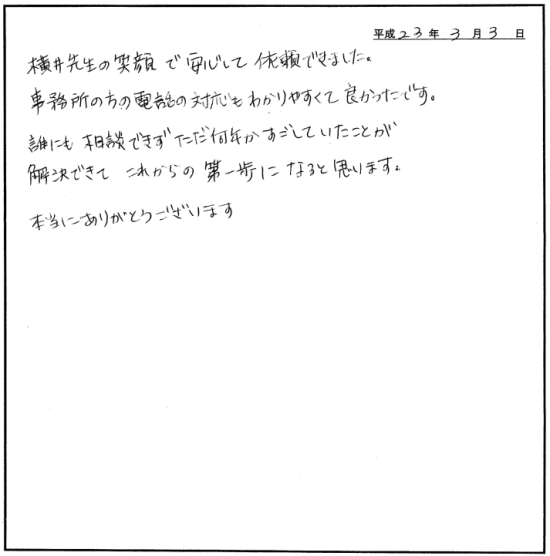 平成23年3月3日
横井先生の笑顔で安心して依頼できました。
事務所の方の電話の対応もわかりやすくて良かったです。
誰にも相談できずただ何年かすごしていたことが
解決できて これからの第一歩になると思います。
本当にありがとうございます